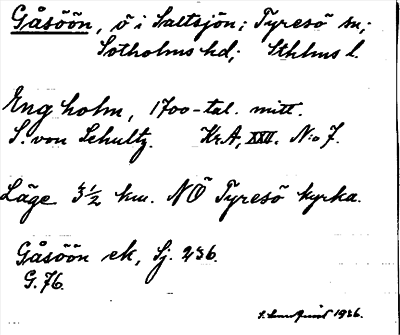 Gåsöön, ö i Saltsjön; Tyresö sn;
Sotholms hd; Sthlms l.
Engholm, 1700-tal. mitt.
S. von Schultz. Kr.A, XXII. N:o 7.
Läge 3½ km. NÖ Tyresö kyrka.
Gåsöön ek, Sj. 236.
G. 76.
1936.